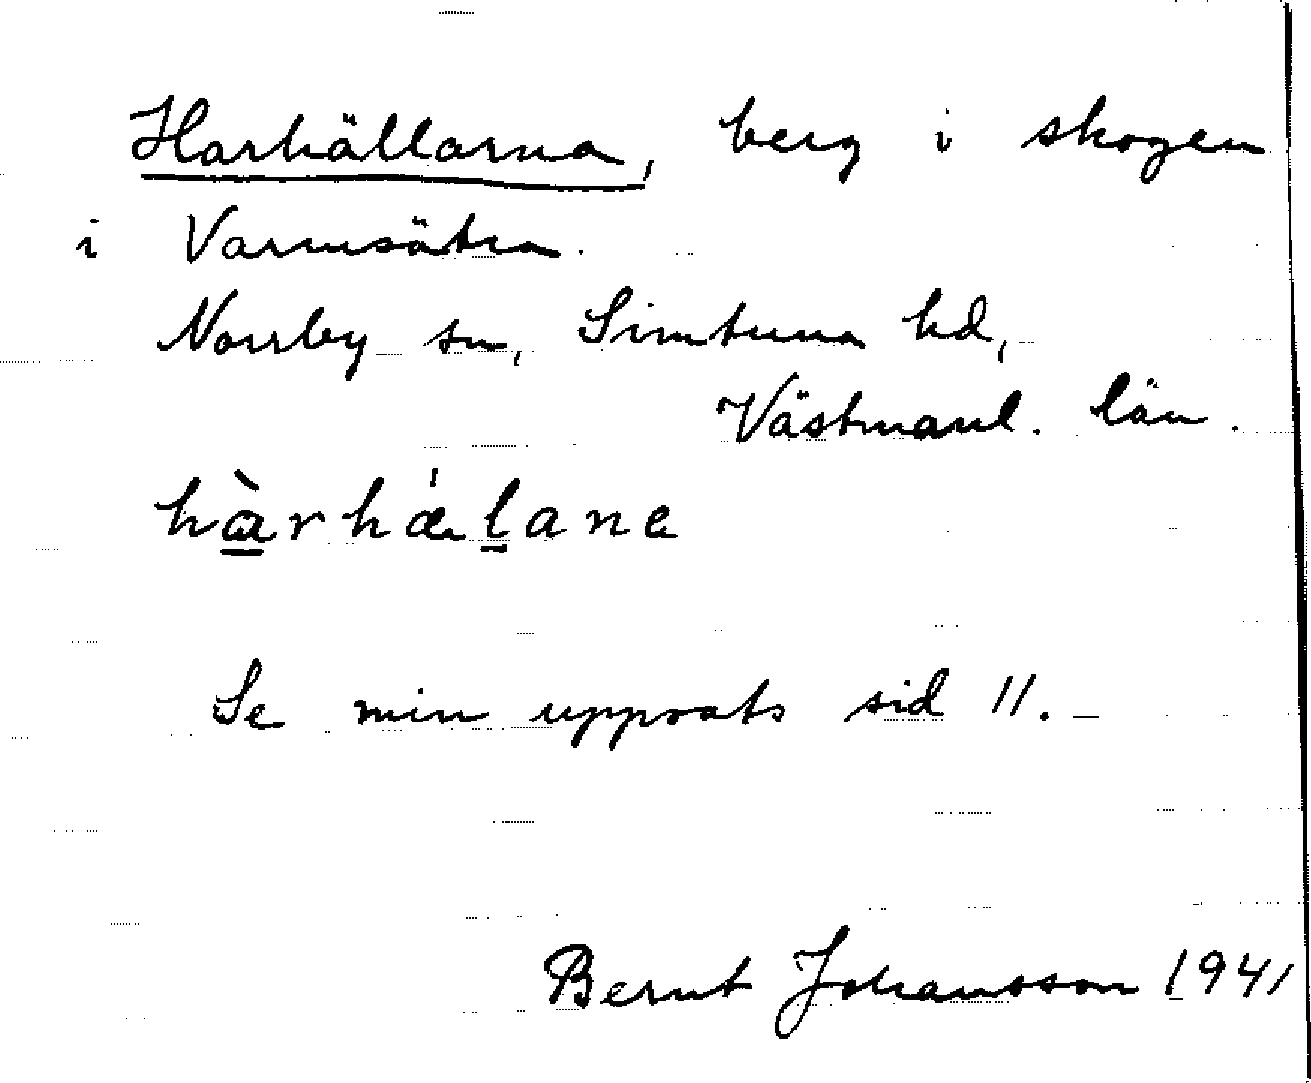 Harhällarna, berg i skogen
i Varmsätra.
Norrby sn, Simtuna hd,
Västmanl. län.
hàrhǽlane
Se min uppsats sid 11.
Bernt Johansson 1941